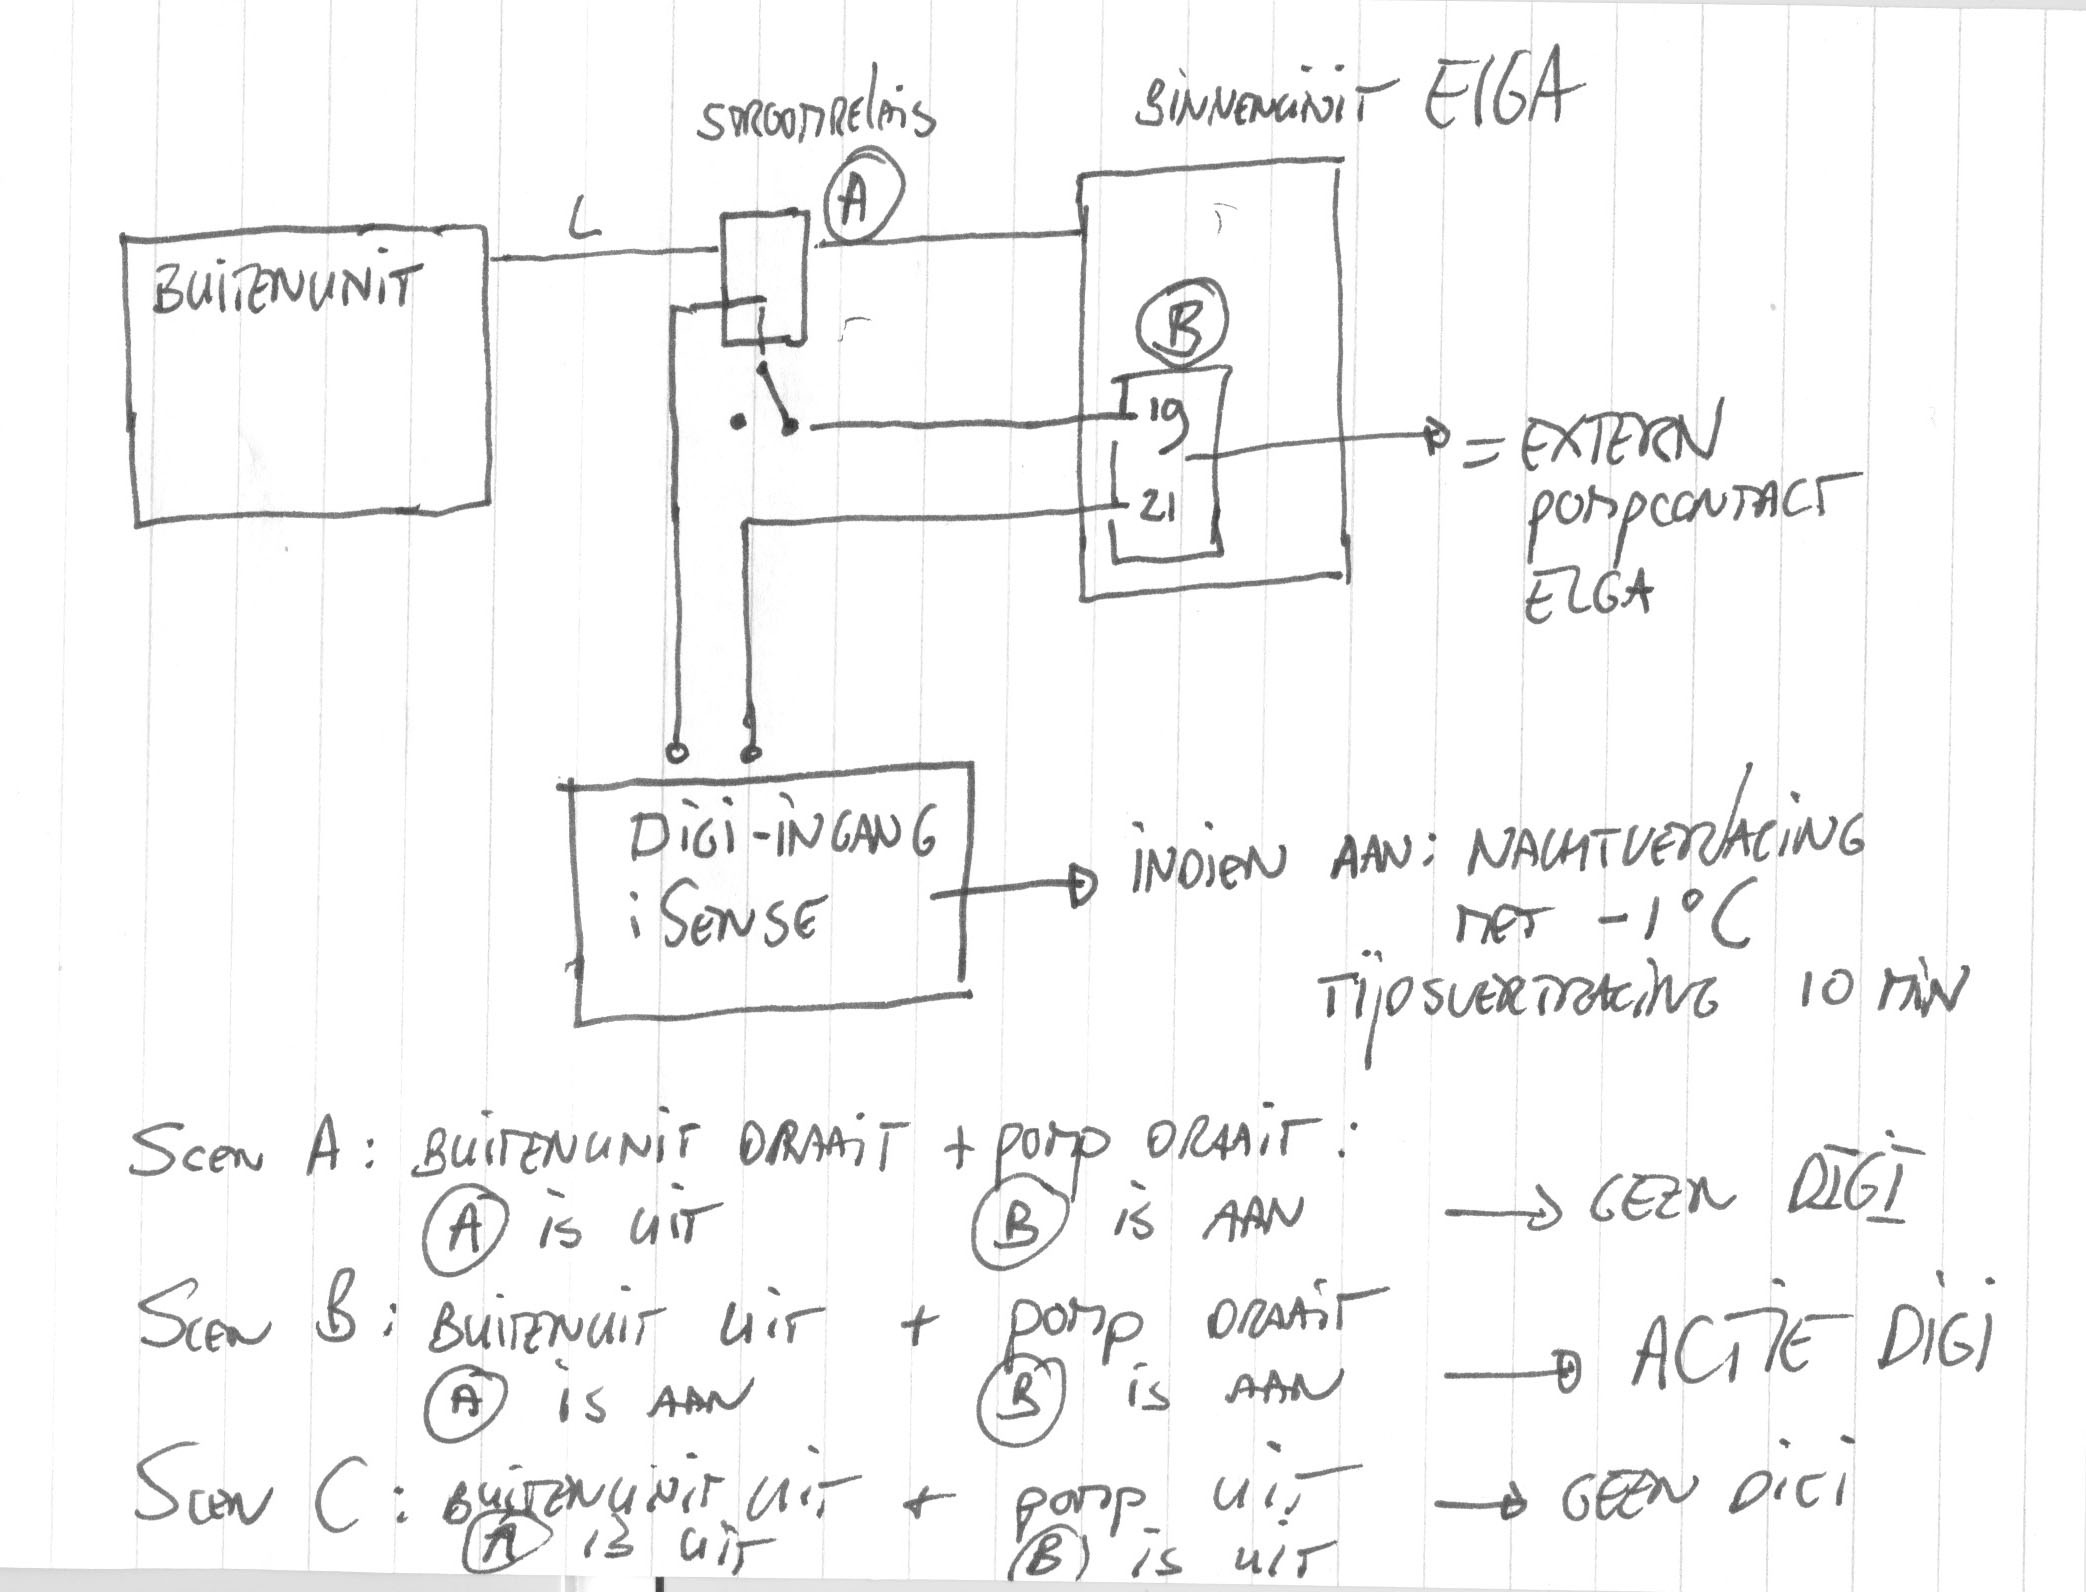 STROOMRELAIS
BINNENUNIT ELGA
A
L
BUITENUNIT
B
19
21
= EXTERN
POMPCONTACT
ELGA
DIGI-INGANG
iSENSE
INDIEN AAN: NACHTVERLAGING
MET -1°C
TIJDSVERTRAGING 10 MIN
SCEN A: BUITENUNIT DRAAIT + POMP DRAAIT:
A IS UIT B IS AAN → GEEN DIGI
SCEN B: BUITENUIT UIT + POMP DRAAIT
A IS AAN B IS AAN → ACTIE DIGI
SCEN C: BUITENUNIT UIT + POMP UIT → GEEN DIGI
A IS UIT B IS UIT